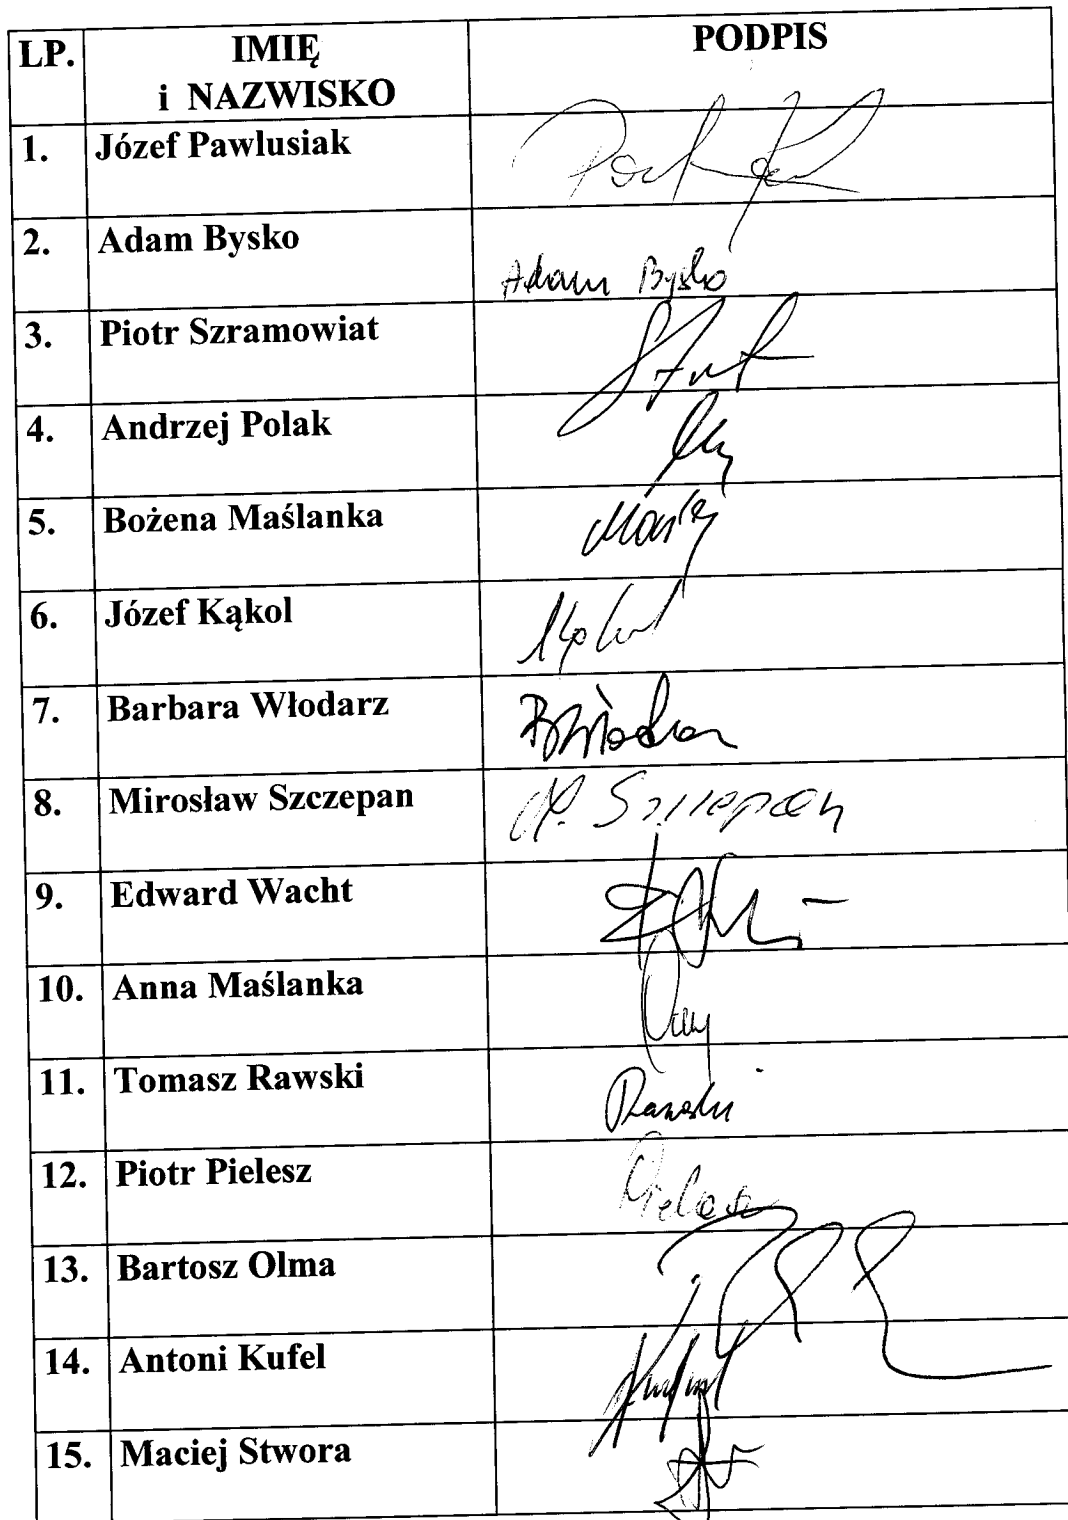 LP. IMIĘ PODPIS
i NAZWISKO
1. Józef Pawlusiak
2. Adam Bysko Adam Bysko
3. Piotr Szramowiat
4. Andrzej Polak
5. Bożena Maślanka
6. Józef Kąkol
7. Barbara Włodarz
8. Mirosław Szczepan M. Szczepan
9. Edward Wacht
10. Anna Maślanka
11. Tomasz Rawski Rawski
12. Piotr Pielesz Pielesz
13. Bartosz Olma
14. Antoni Kufel
15. Maciej Stwora